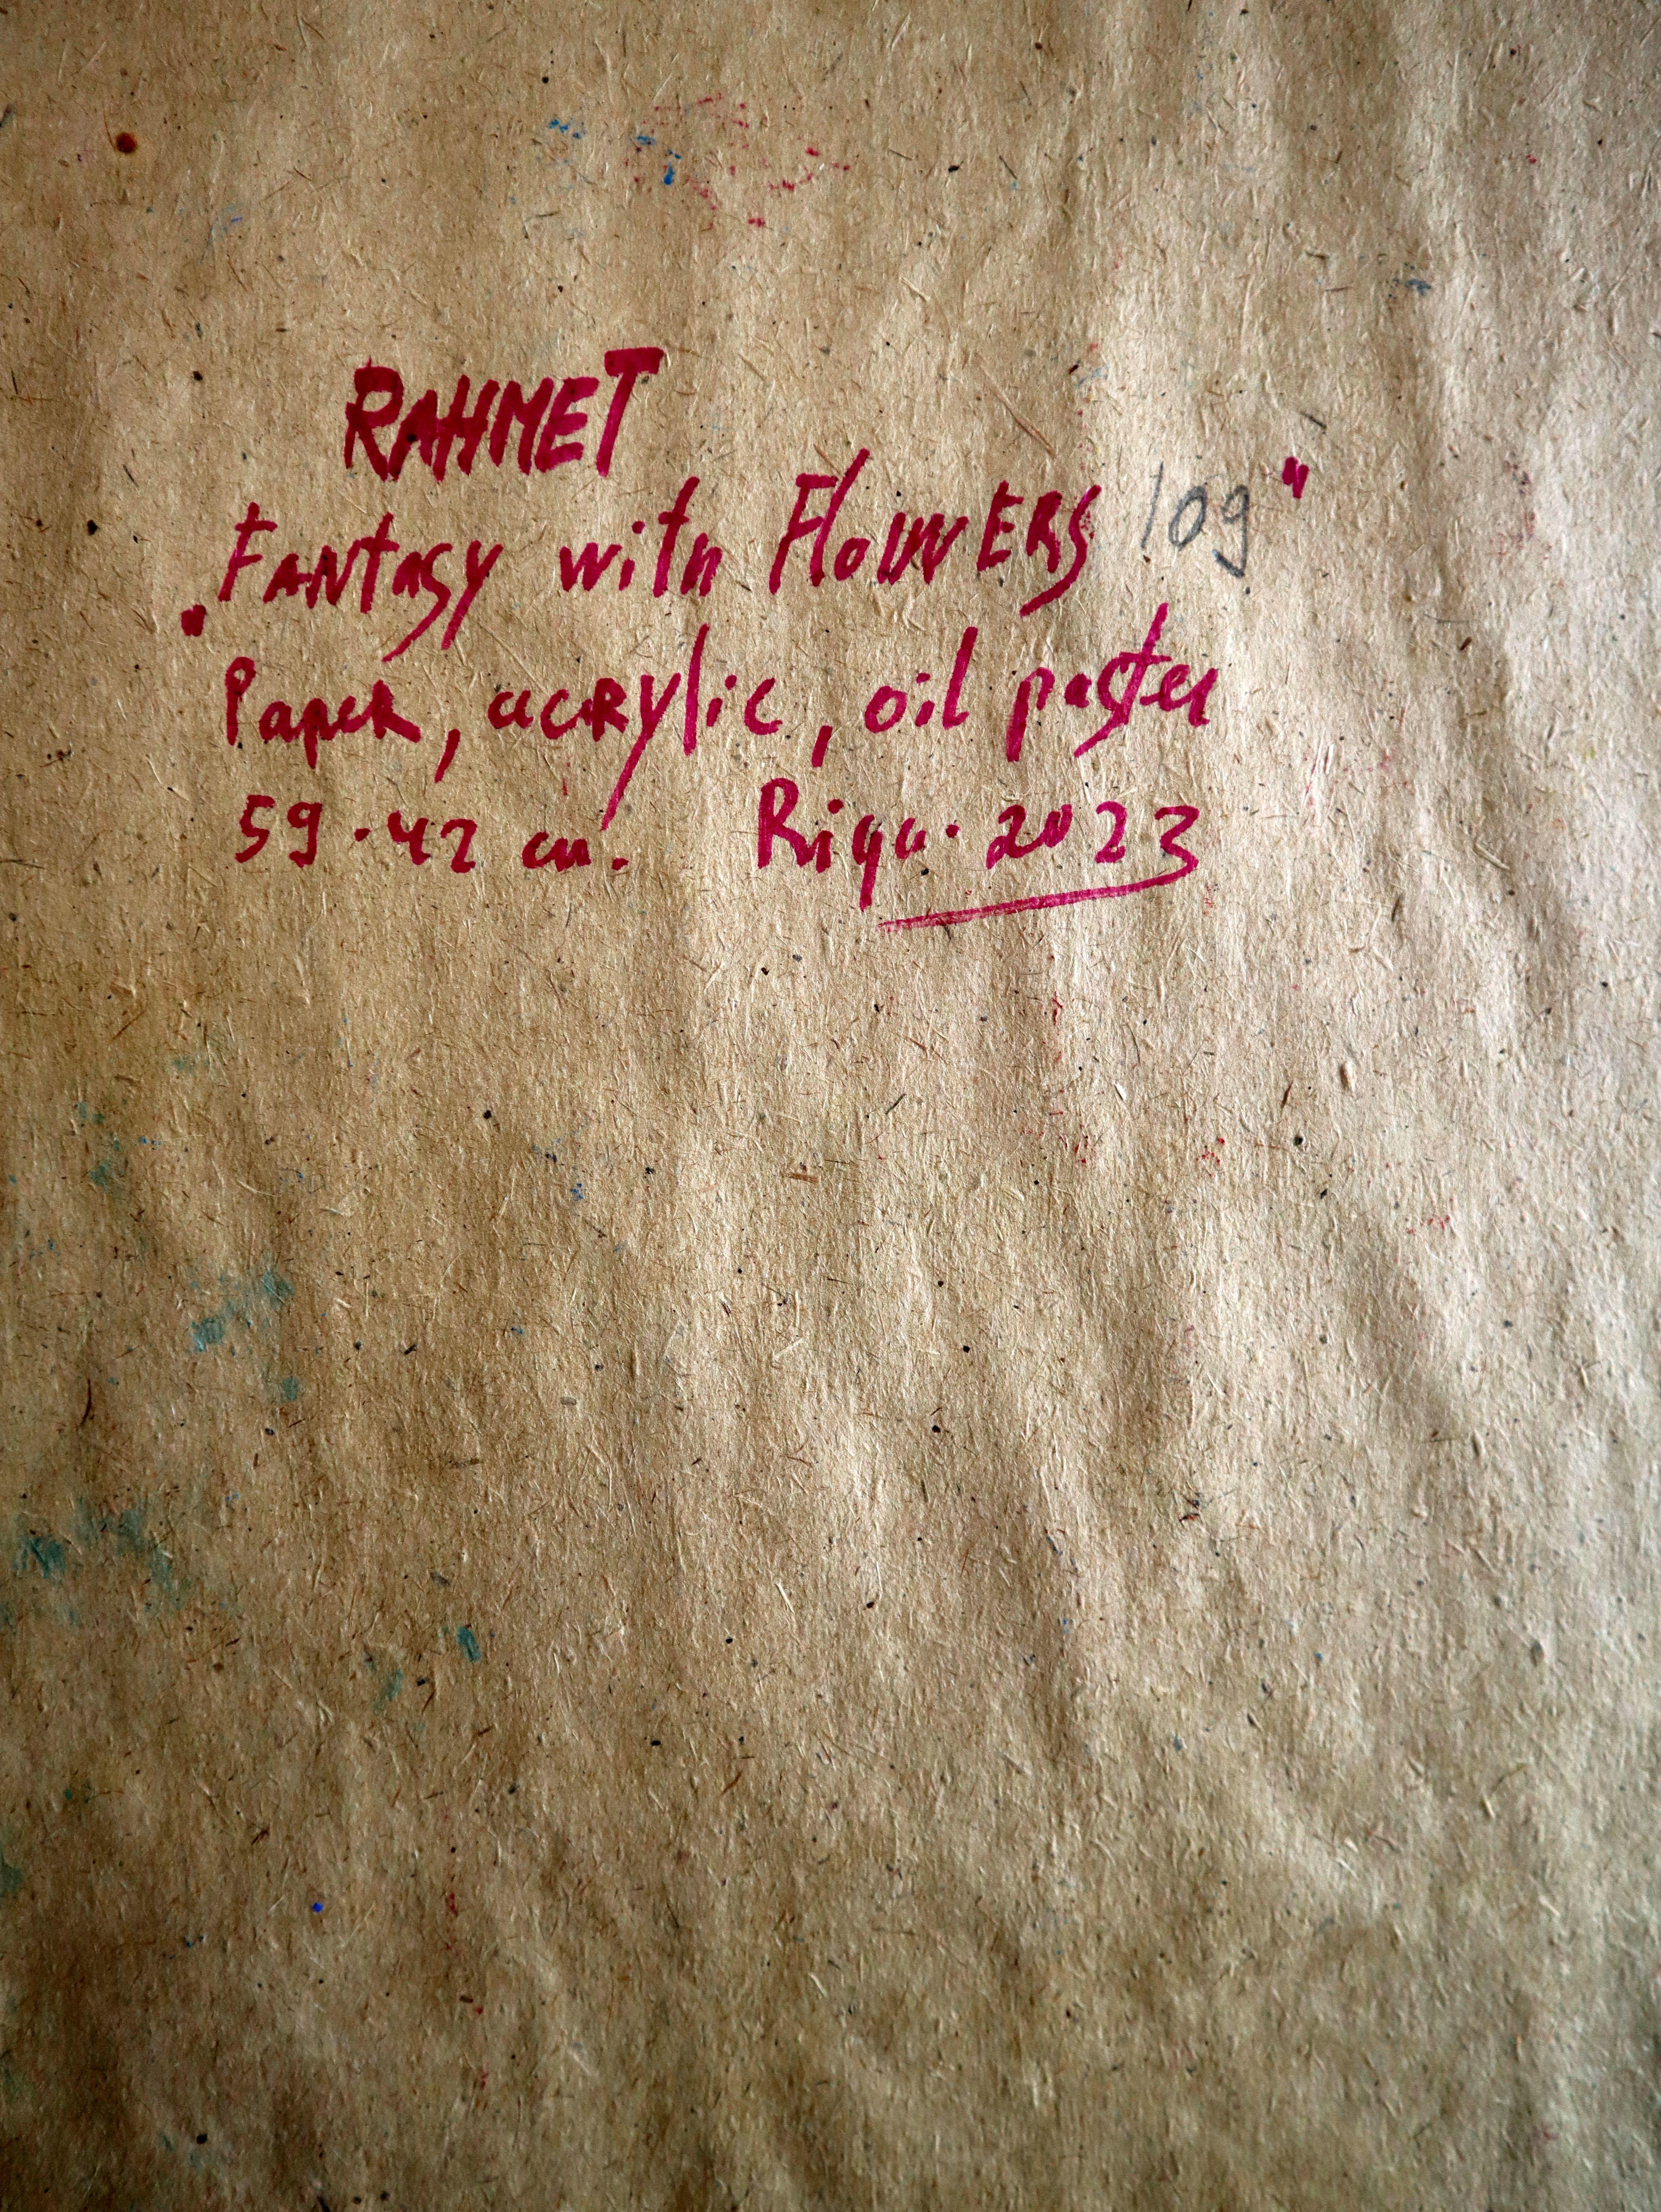 RAHMET
„Fantasy with FloWERS 109"
Paper, acrylic, oil pastel
59 · 42 cm. Riga. 2023